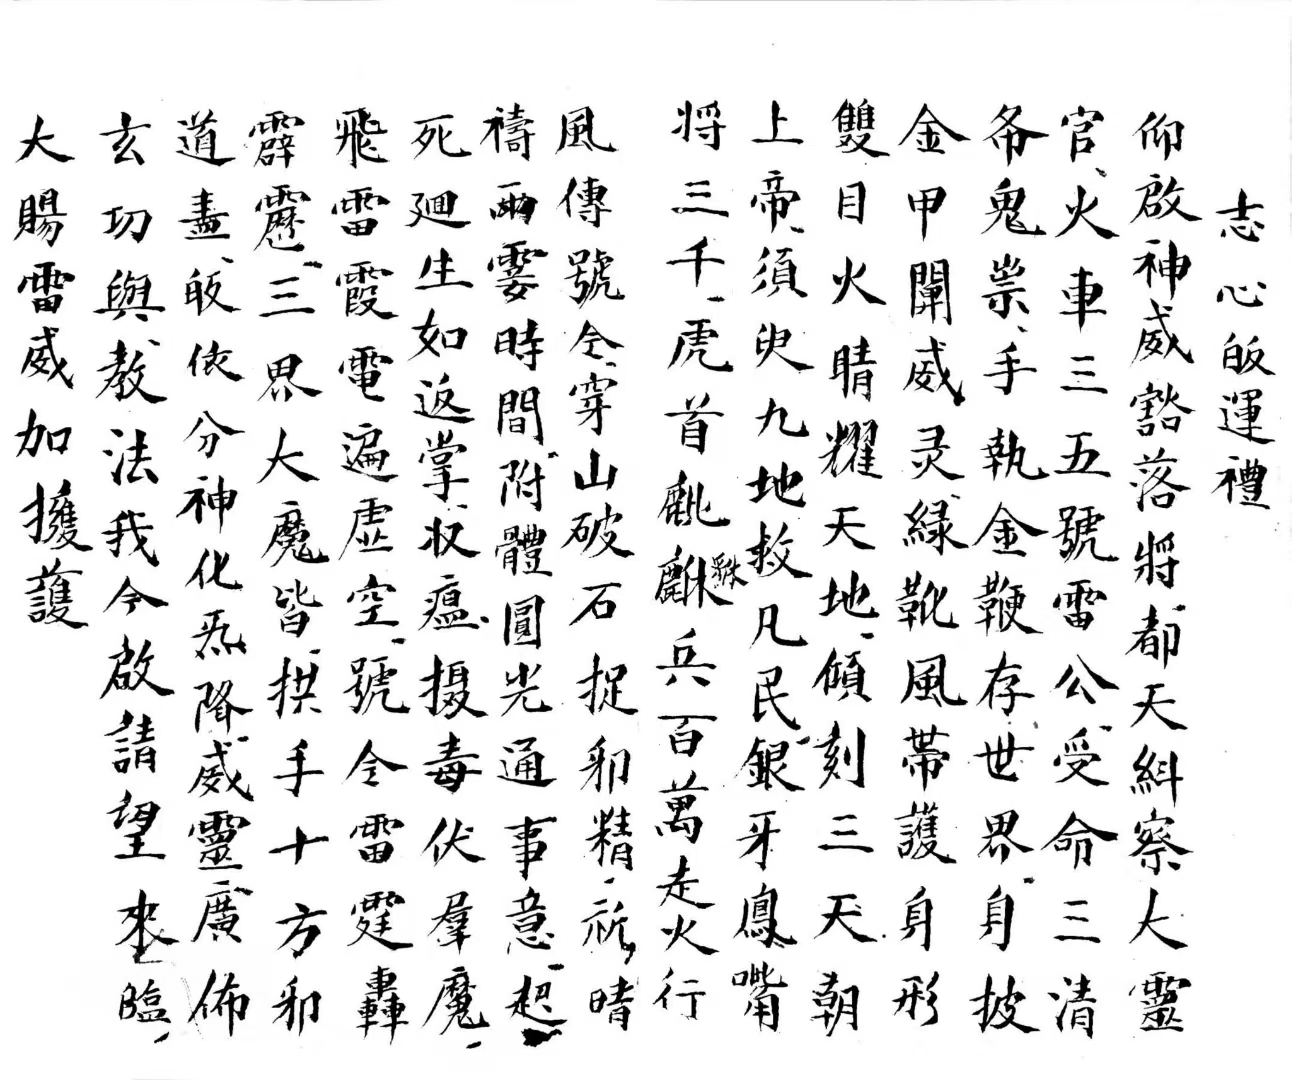 志心皈運禮
仰啟神威豁落將都天糾察大靈
官火車三五號雷公受命三清
斧鬼祟手執金鞭存世界身披
金甲闡威灵緑靴風帶護身形
雙目火睛耀天地傾刻三天朝
上帝須臾九地救凡民銀牙鳳嘴
将三千虎首貔貅兵百萬走火行
風傳號令穿山破石捉邪精祈晴
禱雨霎時間附體圓光通事意起
死廻生如返掌収瘟摄毒伏羣魔
飛雷霞電遍虚空號令雷霆轟
霹靂三界大魔皆拱手十方邪
道盡皈依分神化炁降威靈廣佈
玄功與教法我今啟請望來臨
大賜雷威加擁護